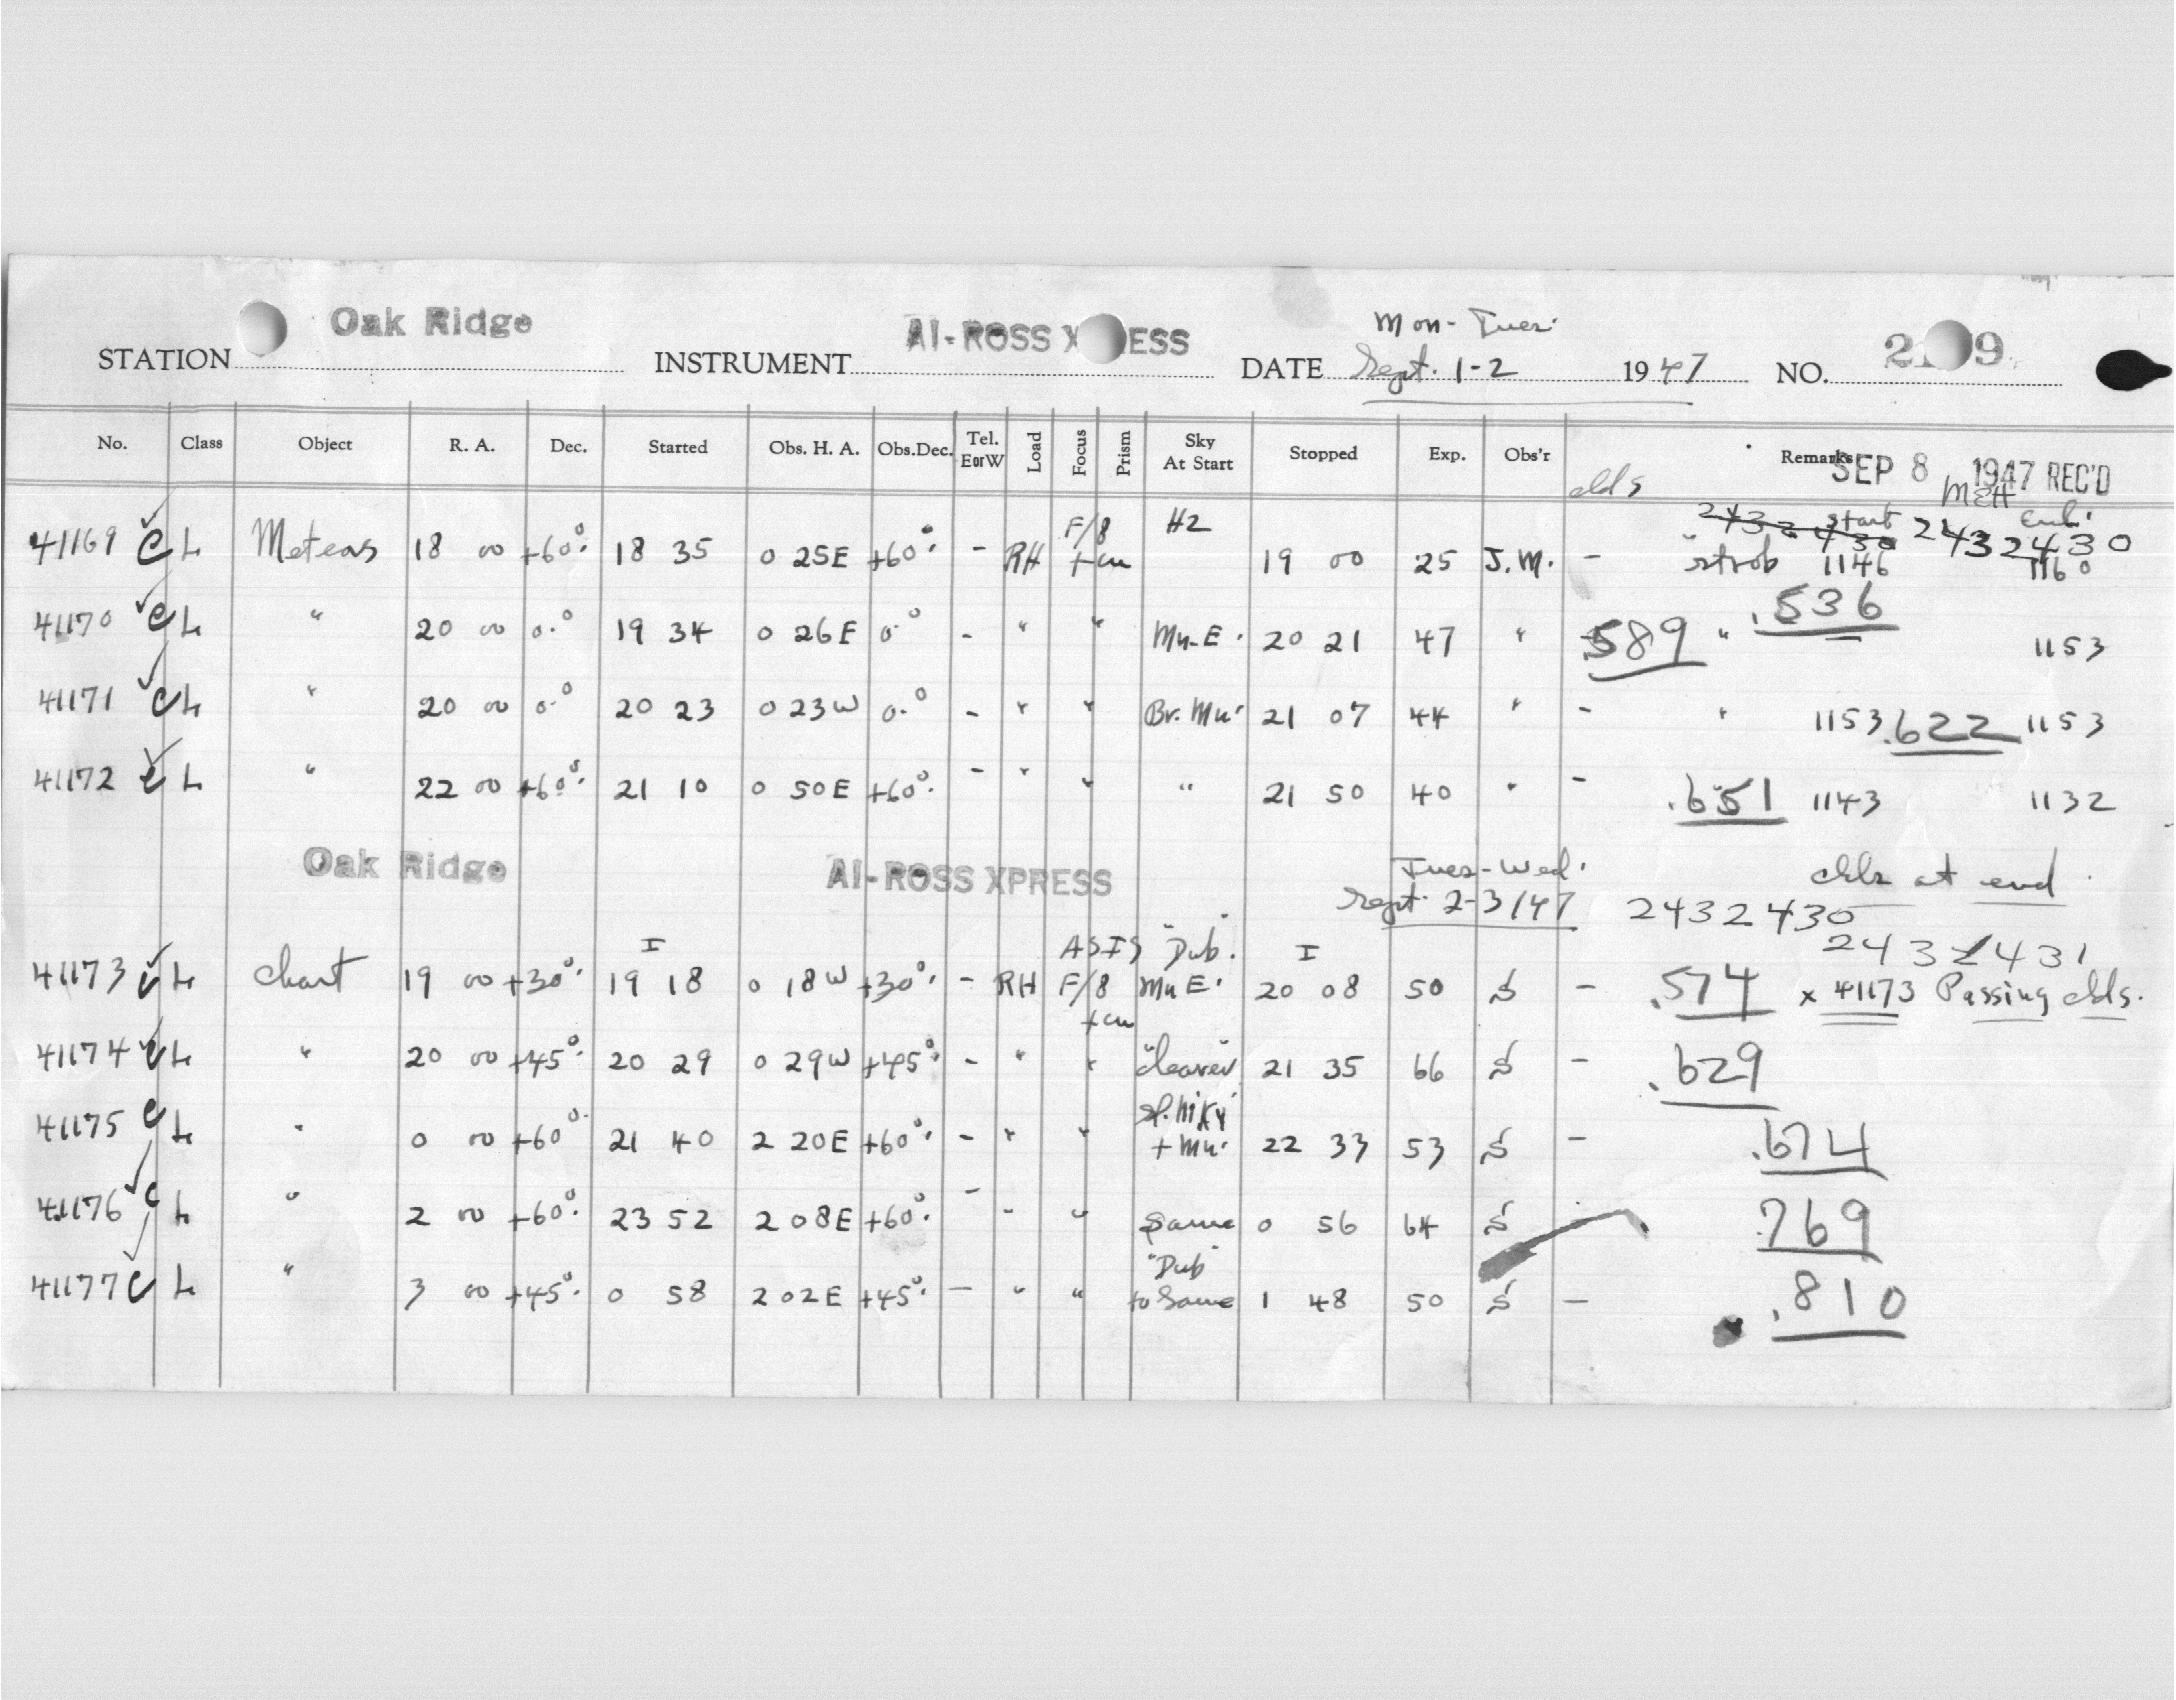 Oak Ridge AI-ROSS X ESS Mon-Tues.
STATION INSTRUMENT DATE Sept. 1-2 1947 NO. 2 9
No. Class Object R. A. Dec. Started Obs. H. A. Obs.Dec. Tel. E or W Load Focus Prism Sky At Start Stopped Exp. Obs'r Remarks
SEP 8 1947 REC'D
clds MEH
start 2432430 end.
41169 C L Meteors 18 00 +60° 18 35 0 25E +60° - RH F/8 + cu H2 19 00 25 J.M. - strob 1146 1160
.536
41170 C L " 20 00 0° 19 34 0 26E 0° - " " Mu-E. 20 21 47 " .589 " 1153
41171 C L " 20 00 0° 20 23 0 23W 0° - " " Br. Mu. 21 07 44 " - " 1153 .622 1153
41172 C L " 22 00 +60° 21 10 0 50E +60° - " " " 21 50 40 " - .651 1143 1132
Oak Ridge AI-ROSS XPRESS Tues-Wed. clds at end
Sept. 2-3/47 2432430
2432431
I ASIS "Dub." I
41173 C L Chart 19 00 +30° 19 18 0 18W +30° - RH F/8 + cu Mu E. 20 08 50 S - .574 x 41173 Passing clds.
41174 C L " 20 00 +45° 20 29 0 29W +45° - " " "clearer" 21 35 66 S - .629
41175 C L " 0 00 +60° 21 40 2 20E +60° - " " + Mu. 22 33 53 S - .674
41176 C L " 2 00 +60° 23 52 2 08E +60° - " " Same 0 56 64 S .769
"Dub"
41177 C L " 3 00 +45° 0 58 2 02E +45° - " " to Same 1 48 50 S - .810